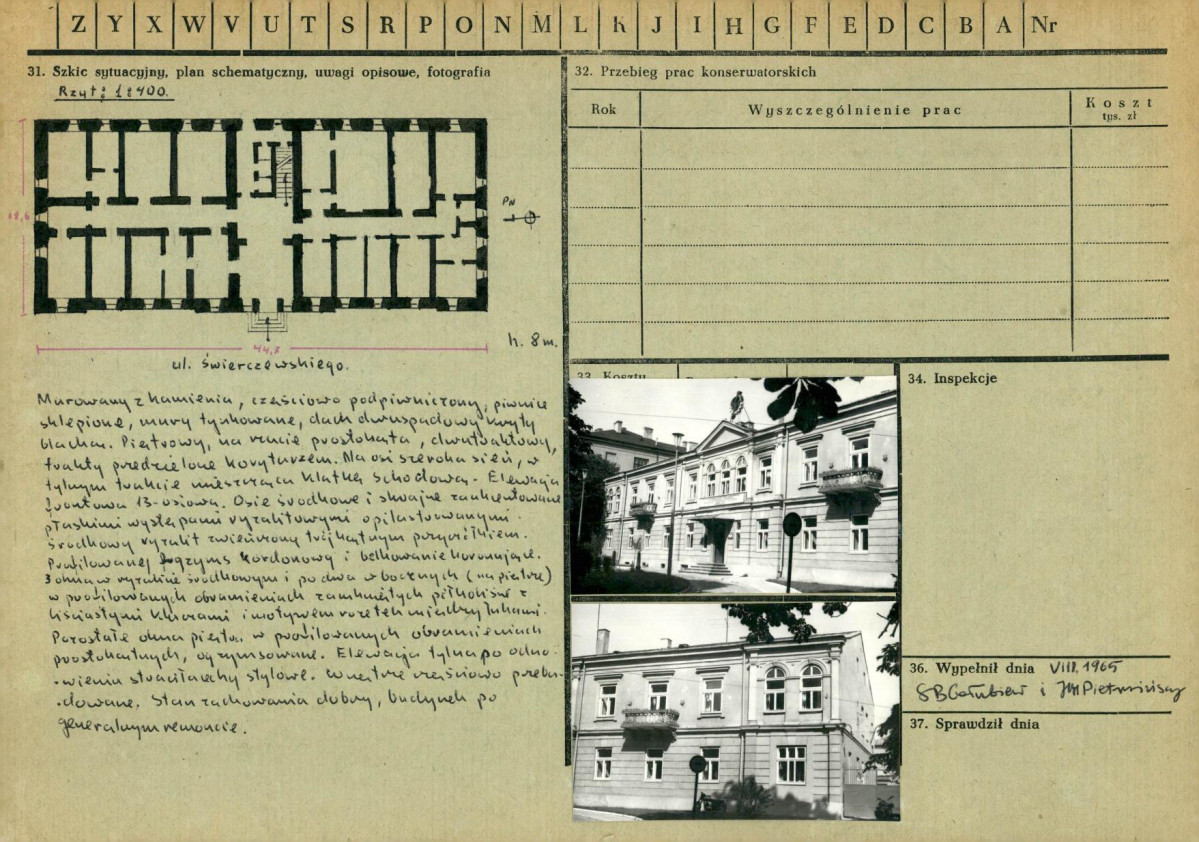 Z Y X W V U T S R P O N M L K J I H G F E D C B A Nr
31. Szkic sytuacyjny, plan schematyczny, uwagi opisowe, fotografia
Rzut: 1:400.
18,6
PN
44,8
h. 8 m.
ul. Świerczewskiego.
Murowany z kamienia, częściowo podpiwniczony, piwnice
sklepione, mury tynkowane, dach dwuspadowy kryty
blachą. Piętrowy, na rzucie prostokąta, dwutraktowy,
trakty przedzielone korytarzem. Na osi szeroka sień, w
tylnym trakcie mieszcząca klatkę schodową. Elewacja
frontowa 13-osiowa. Osie środkowe i skrajne zaakcentowane
płaskimi występami ryzalitowymi opilastrowanymi.
Środkowy ryzalit zwieńczony trójkątnym przyczółkiem.
Profilowany gzyms kordonowy i belkowanie koronujące.
3 okna w ryzalicie środkowym i po dwa w bocznych (na piętrze)
w profilowanych obramieniach zamkniętych półkoliście z
liściastymi kluczami i motywem rozetek między łukami.
Pozostałe okna piętra w profilowanych obramieniach
prostokątnych, ogzymsowane. Elewacja tylna po odno-
-wieniu straciła cechy stylowe. Wnętrze częściowo przebu-
-dowane. Stan zachowania dobry, budynek po
generalnym remoncie.
32. Przebieg prac konserwatorskich
Rok
Wyszczególnienie prac
Koszt
tys. zł
33. Koszty
34. Inspekcje
36. Wypełnił dnia VIII. 1965
SB Gołubiew i
37. Sprawdził dnia